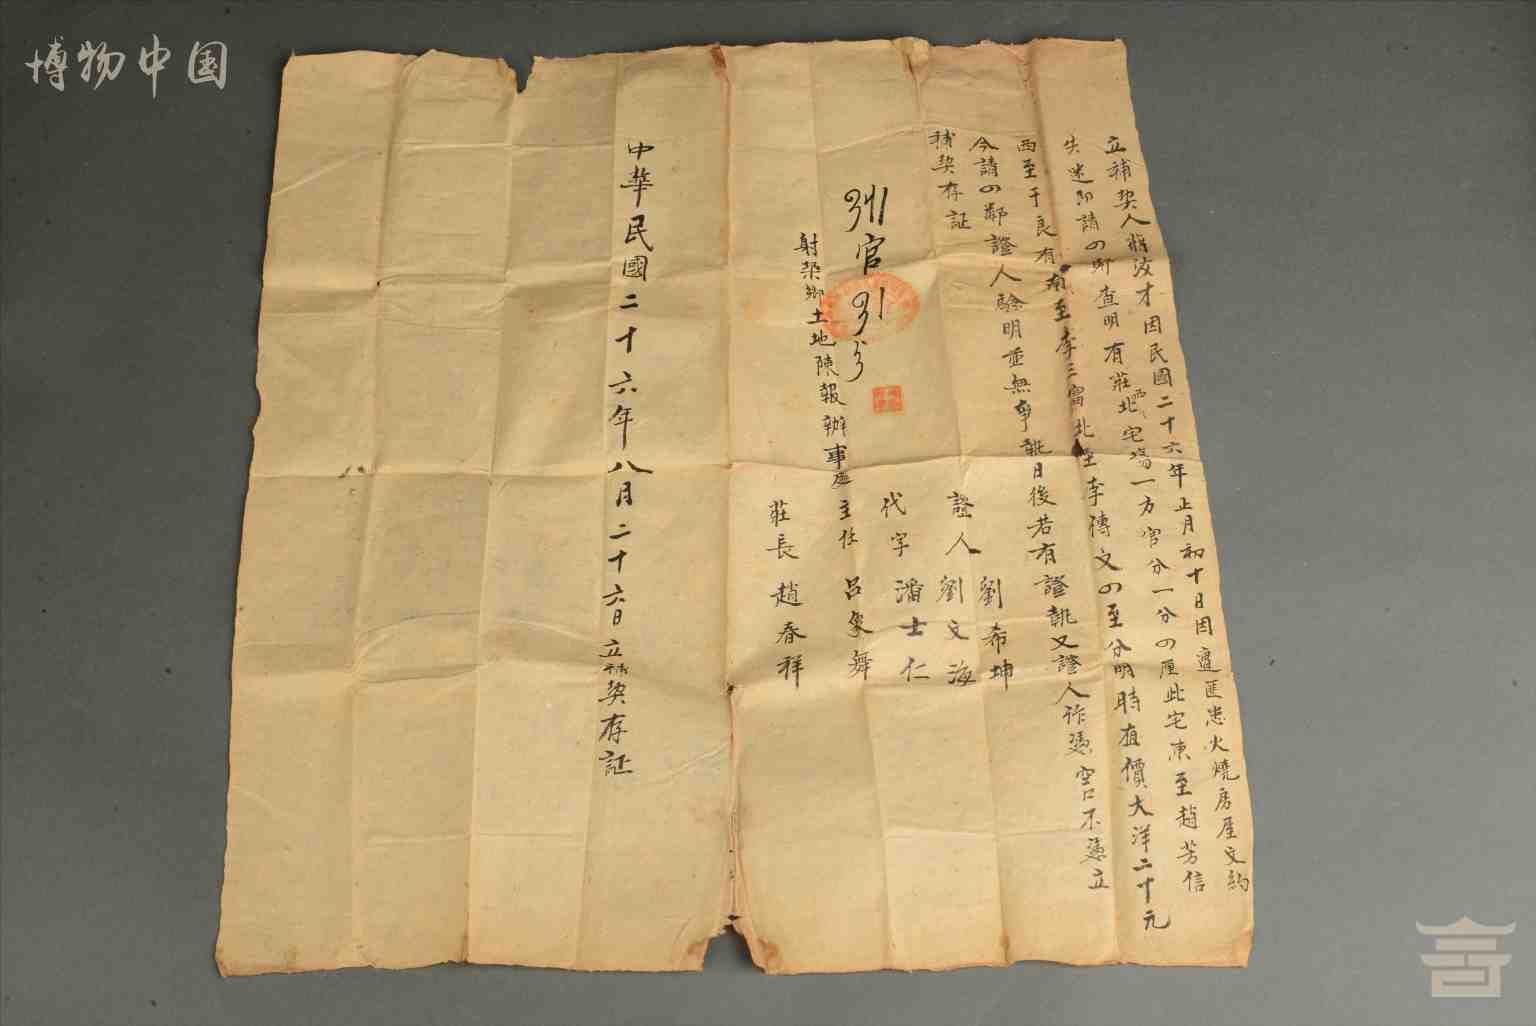 博物中国
立補契人蔣汝才因民國二十六年正月初十日因遭匪患火燒房屋文約
失迷即請四鄰查明有莊北宅場一方官分一分四厘此宅東至趙芳信
西至于良有南至李三富北至李傳文四至分明時值價大洋二十元
今請四鄰證人驗明並無爭執日後若有證執又證人作憑空口不憑立
補契存証
證人 劉希坤
劉文海
代字 潘士仁
官
射梁鄉土地陳報辦事處主任 呂象舞
莊長 趙春祥
中華民國二十六年八月二十六日立補契存証